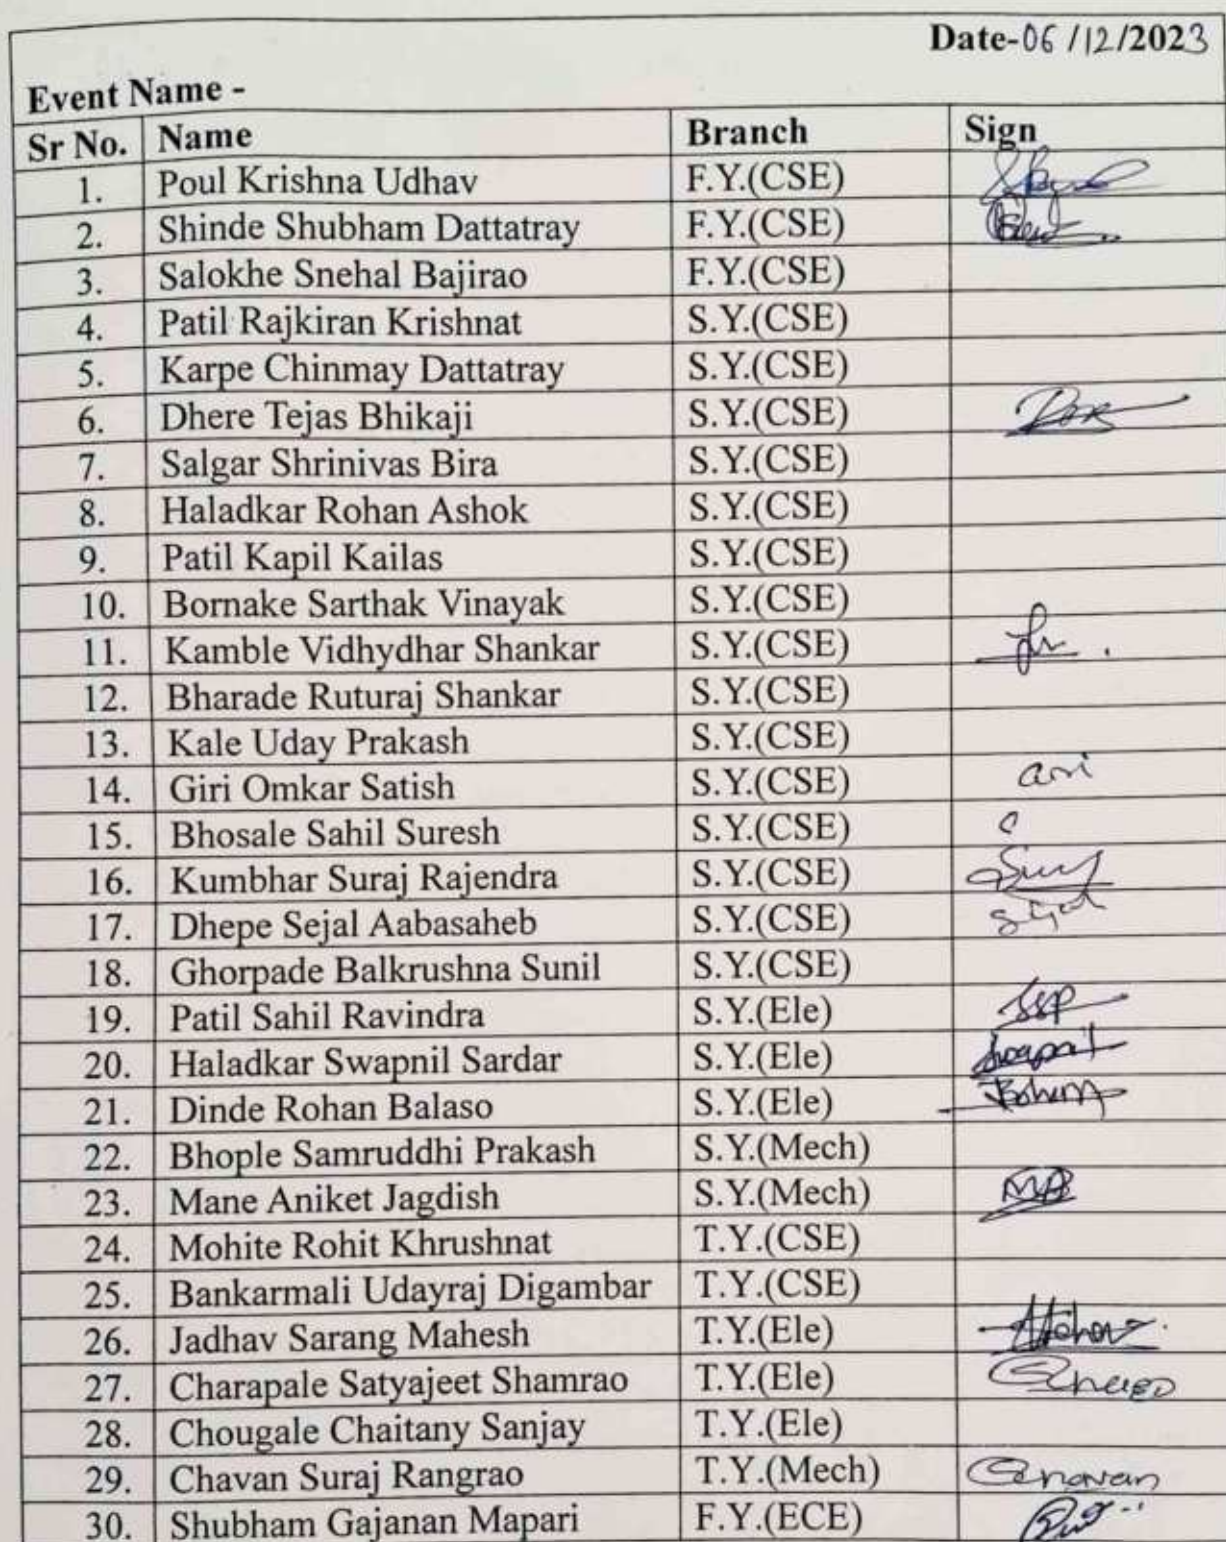 Date-06/12/2023
Event Name -
Sr No. Name Branch Sign
1. Poul Krishna Udhav F.Y.(CSE)
2. Shinde Shubham Dattatray F.Y.(CSE)
3. Salokhe Snehal Bajirao F.Y.(CSE)
4. Patil Rajkiran Krishnat S.Y.(CSE)
5. Karpe Chinmay Dattatray S.Y.(CSE)
6. Dhere Tejas Bhikaji S.Y.(CSE)
7. Salgar Shrinivas Bira S.Y.(CSE)
8. Haladkar Rohan Ashok S.Y.(CSE)
9. Patil Kapil Kailas S.Y.(CSE)
10. Bornake Sarthak Vinayak S.Y.(CSE)
11. Kamble Vidhydhar Shankar S.Y.(CSE)
12. Bharade Ruturaj Shankar S.Y.(CSE)
13. Kale Uday Prakash S.Y.(CSE)
14. Giri Omkar Satish S.Y.(CSE)
15. Bhosale Sahil Suresh S.Y.(CSE)
16. Kumbhar Suraj Rajendra S.Y.(CSE)
17. Dhepe Sejal Aabasaheb S.Y.(CSE)
18. Ghorpade Balkrushna Sunil S.Y.(CSE)
19. Patil Sahil Ravindra S.Y.(Ele)
20. Haladkar Swapnil Sardar S.Y.(Ele)
21. Dinde Rohan Balaso S.Y.(Ele)
22. Bhople Samruddhi Prakash S.Y.(Mech)
23. Mane Aniket Jagdish S.Y.(Mech)
24. Mohite Rohit Khrushnat T.Y.(CSE)
25. Bankarmali Udayraj Digambar T.Y.(CSE)
26. Jadhav Sarang Mahesh T.Y.(Ele)
27. Charapale Satyajeet Shamrao T.Y.(Ele)
28. Chougale Chaitany Sanjay T.Y.(Ele)
29. Chavan Suraj Rangrao T.Y.(Mech) Chavan
30. Shubham Gajanan Mapari F.Y.(ECE)